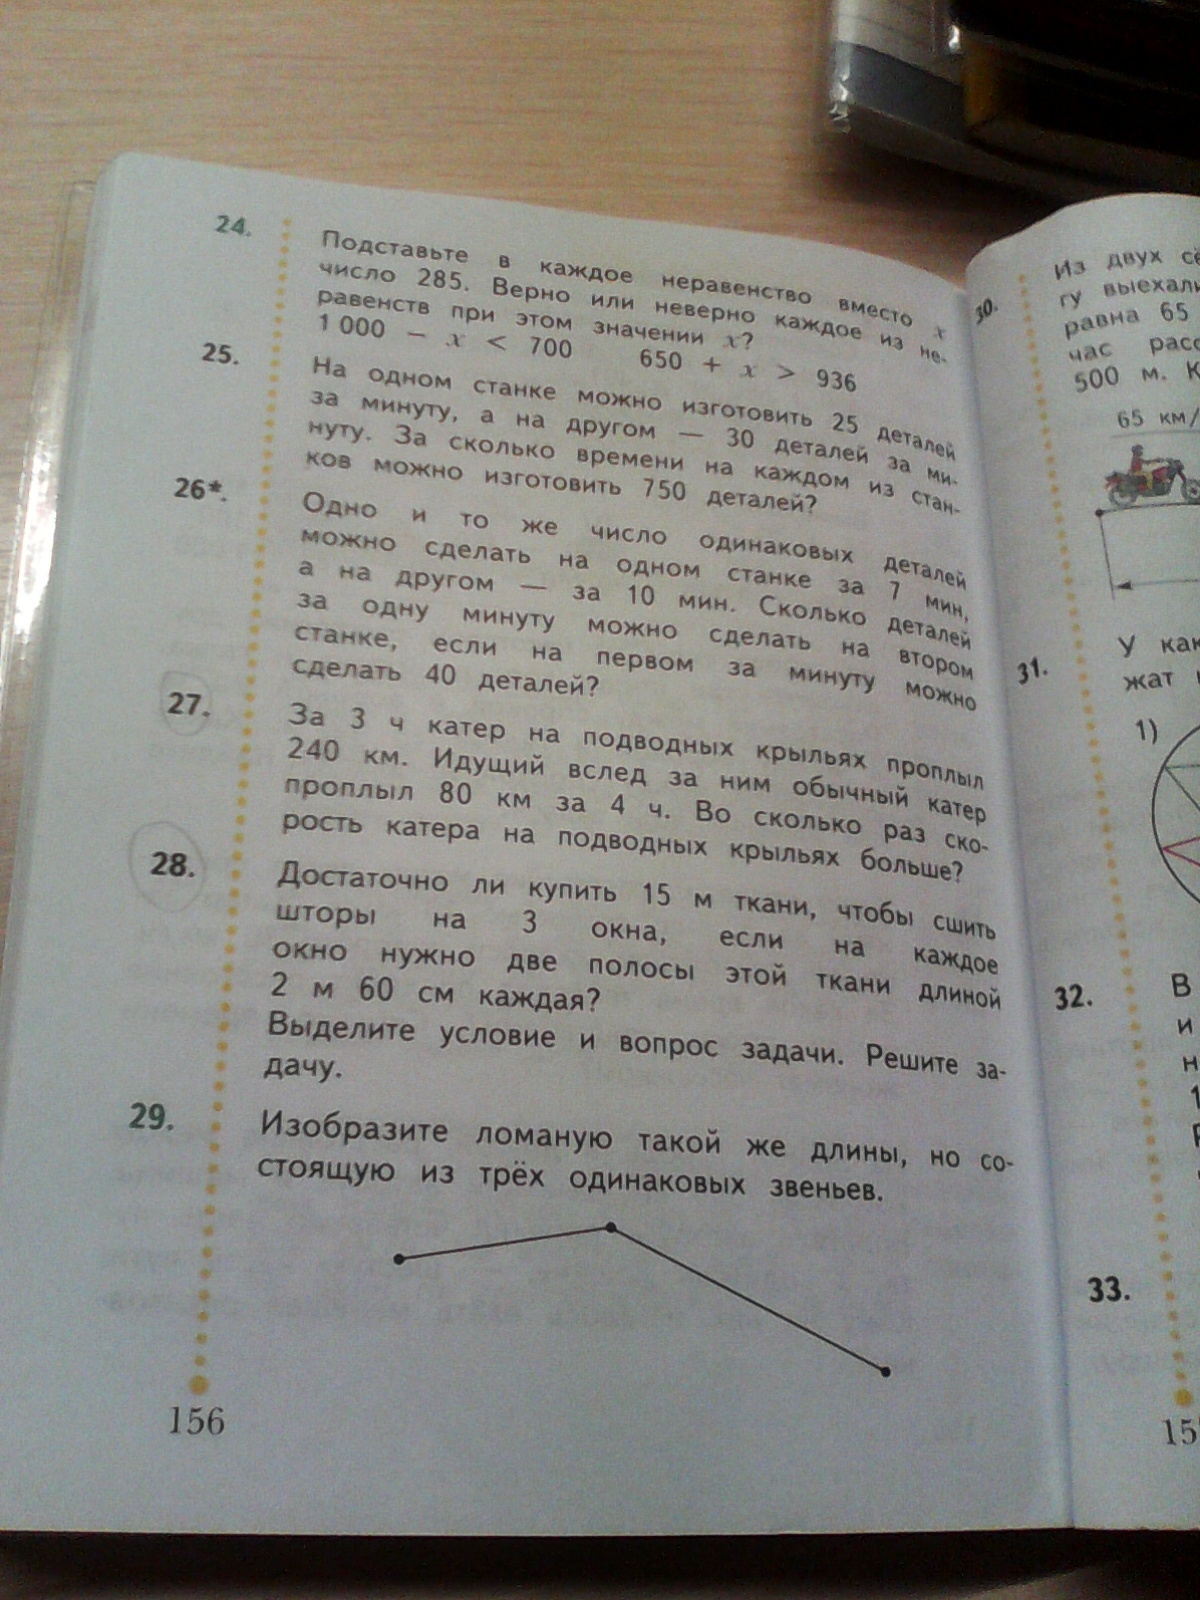 24.
Подставьте в каждое неравенство вместо x
число 285. Верно или неверно каждое из не-
равенств при этом значении x?
1 000 − x < 700 650 + x > 936
25.
На одном станке можно изготовить 25 деталей
за минуту, а на другом — 30 деталей за ми-
нуту. За сколько времени на каждом из стан-
ков можно изготовить 750 деталей?
26*.
Одно и то же число одинаковых деталей
можно сделать на одном станке за 7 мин,
а на другом — за 10 мин. Сколько деталей
за одну минуту можно сделать на втором
станке, если на первом за минуту можно
сделать 40 деталей?
27.
За 3 ч катер на подводных крыльях проплыл
240 км. Идущий вслед за ним обычный катер
проплыл 80 км за 4 ч. Во сколько раз ско-
рость катера на подводных крыльях больше?
28.
Достаточно ли купить 15 м ткани, чтобы сшить
шторы на 3 окна, если на каждое
окно нужно две полосы этой ткани длиной
2 м 60 см каждая?
Выделите условие и вопрос задачи. Решите за-
дачу.
29.
Изобразите ломаную такой же длины, но со-
стоящую из трёх одинаковых звеньев.
156
30.
Из двух сё
гу выехали
равна 65
час расс
500 м. К
65 км/
31.
У как
жат
1)
32.
В
и
н
1
33.
15